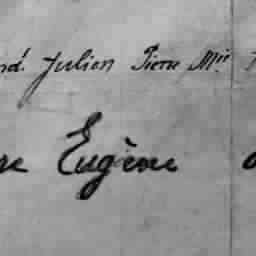 nd. Julien Pierre Mie
re Eugène